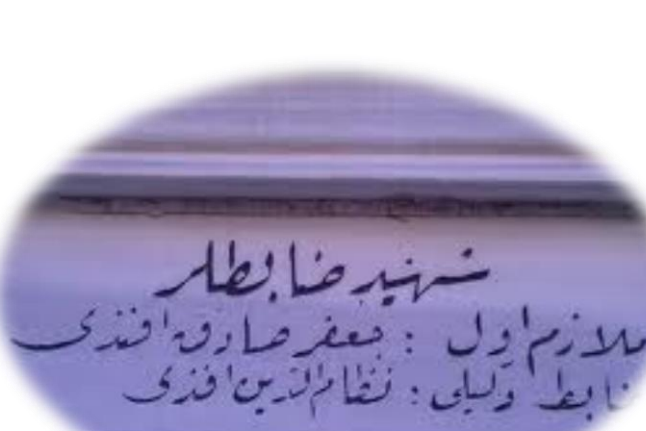 شهید ضابطلر
ملازم اول : جعفر صادق افندی
ضابط وکیلی : نظام الدین افندی